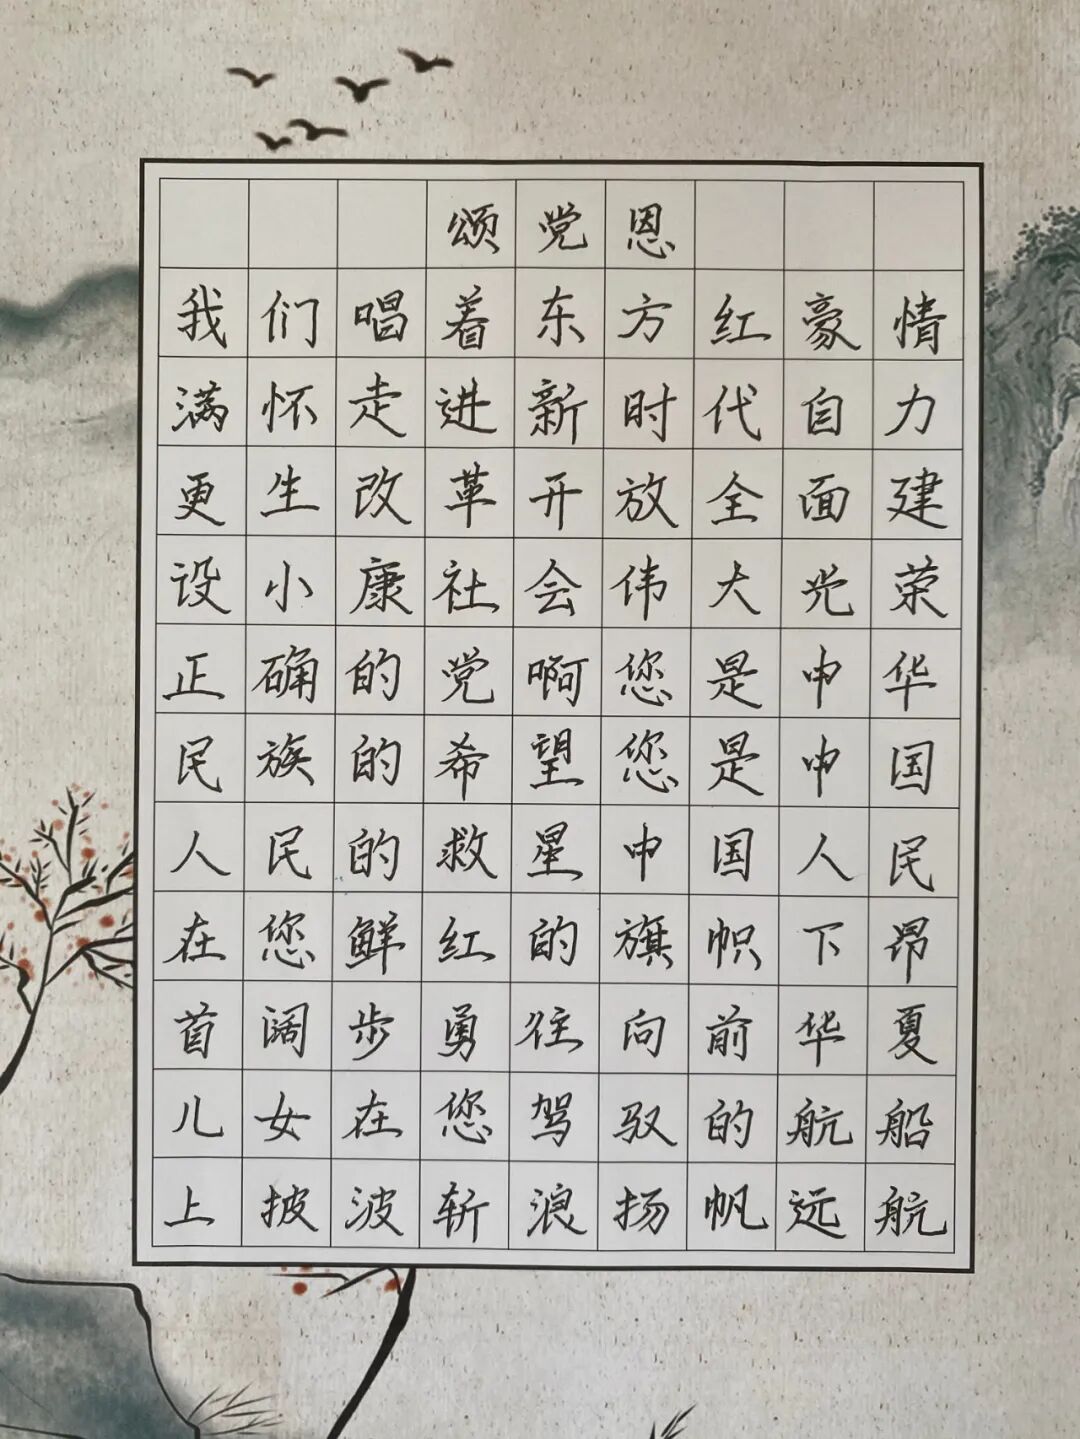 颂党恩
我们唱着东方红豪情
满怀走进新时代自力
更生改革开放全面建
设小康社会伟大光荣
正确的党啊您是中华
民族的希望您是中国
人民的救星中国人民
在您鲜红的旗帜下昂
首阔步勇往向前华夏
儿女在您驾驭的航船
上披波斩浪扬帆远航